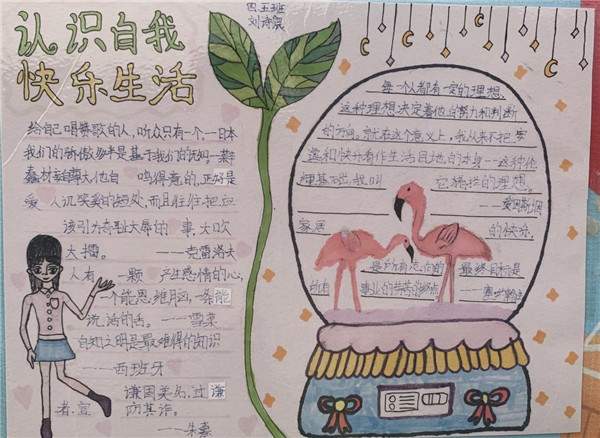 认识自我
快乐生活
四五班
给自己唱赞歌的人,听众只有一个.一日本
我们的骄傲多半是基于我们的无知.一莱
辛
大他自
鸣得意的,正好是
爱人
而且往往把应
该引为奇耻大辱的事,大吹
大擂。
——克雷洛夫
人有一颗产生感情的心,
一个能思维的脑,一条能
说话的舌。——雪莱
自知之明是最难得的知识
——西班牙
谦固美名,过谦
者,宜防其诈。
——朱熹
每一个人都有一定的理想,
这种理想决定着他的努力和判断
的方向。就在这个意义上,我从来不把安
逸和快乐看作生活目的的本身一这种伦
理基础,我叫它猪栏的理想。
——爱因斯坦
家居的快乐
是所有志向的最终目标是
所有事业的劳苦的终点